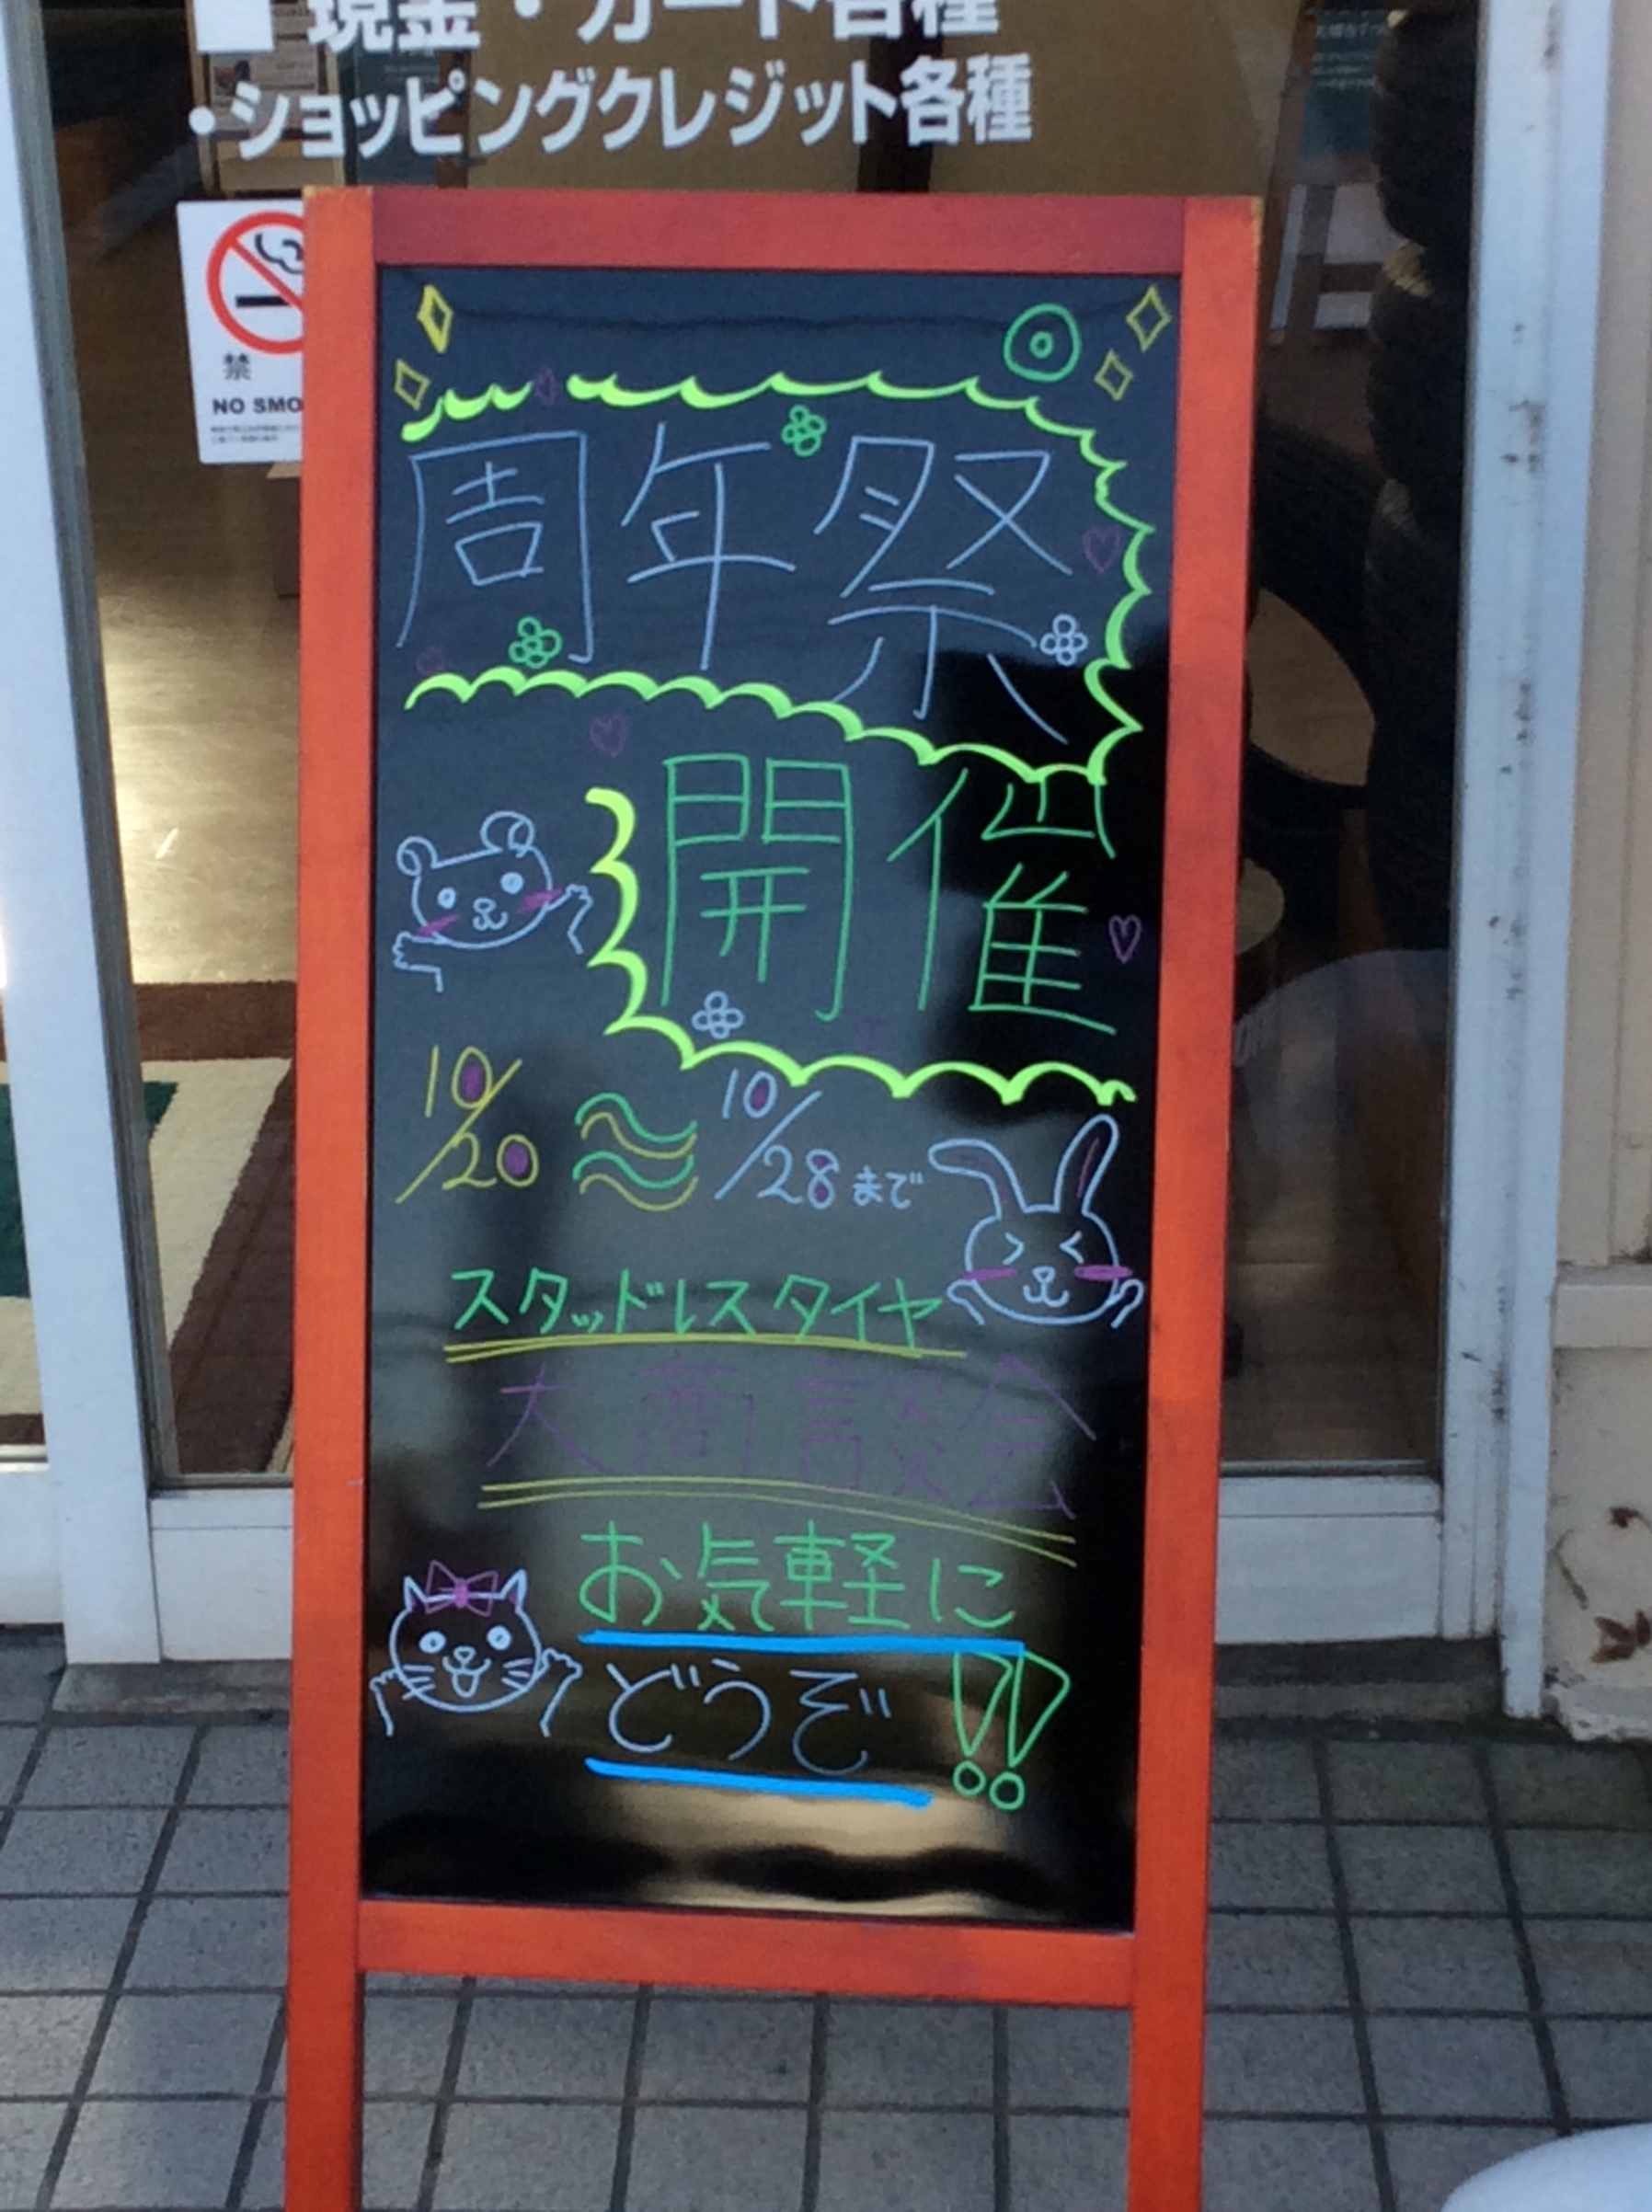 ■現金・カード各種
・ショッピングクレジット各種
禁
NO SMO
周年祭
開催
10/20 ~ 10/28まで
スタッドレスタイヤ
大商談会
お気軽に
どうぞ!!